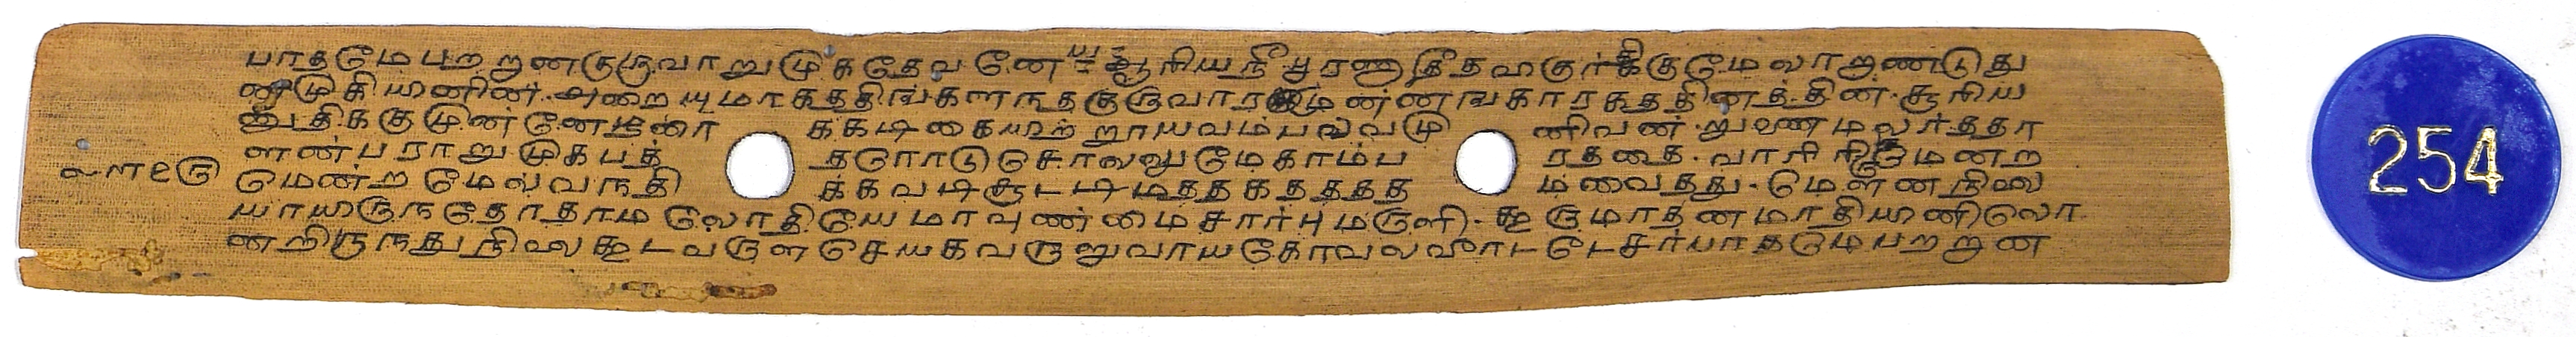 பாதமே பறறுனகுருவாறுமுகதேவனே சூரியநீ பூரணாதீதஹகுர்க்குமேலாறுண்டுது
ணமுகியானின்.அறையுமாகத்திங்களநதகுருவார மண்ணஙகாரகத்தினத்.தின்.சூரிய
னுதிக்குமுனனே க்கடிகையுற்றாயவம்பல்வமு னிவன்.றுணைமலர்த்தா
ளன்பராறுமுகபத் தரோடுசொலலுமேகாம்ப ரத்தை.வாரி மென்ற
மென்றமேல்வநதி க்கவடிசூடடிமத்தகத்தத்த ம்வைத்து.மௌனநிலை
யாயிருநதோதாம லோதியேமாவுண்மைசார்புமருளி.கூருமாதனமாதியினிலொ
ன்றிருநதுநிலைகூடவருளசெயகவருறுவாயகோவலவீரடடேசர்பாதமேபறறுன
254